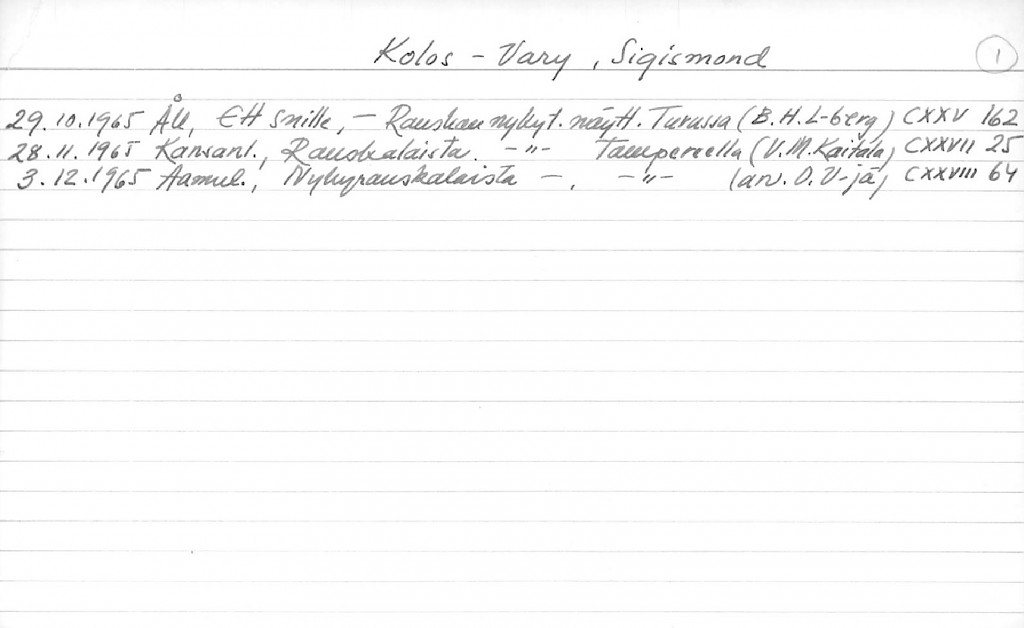 Kolos - Vary, Sigismond 1
29.10.1965 ÅU, Ett snille, - Ranskan nykyt. näytt. Turussa (B.H. L-berg) CXXV 162
28.11.1965 Kansanl., Ranskalaista -"- Tampereella (V.M. Kaitala) CXXVII 25
3.12.1965 Aamul., Nykyranskalaista -, -"- (arv. O. V-jä) CXXVIII 64